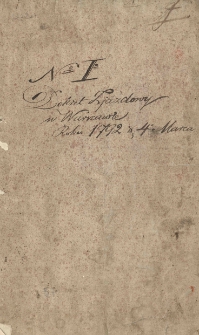 No I
Dekret Zjazdowy
w Warszawie
Roku 1792 d. 4 Marca